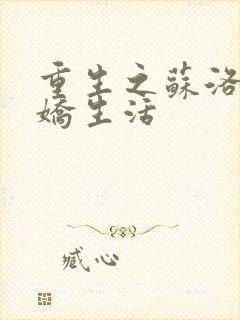 重生之蘇洛
嬌生活
臧心